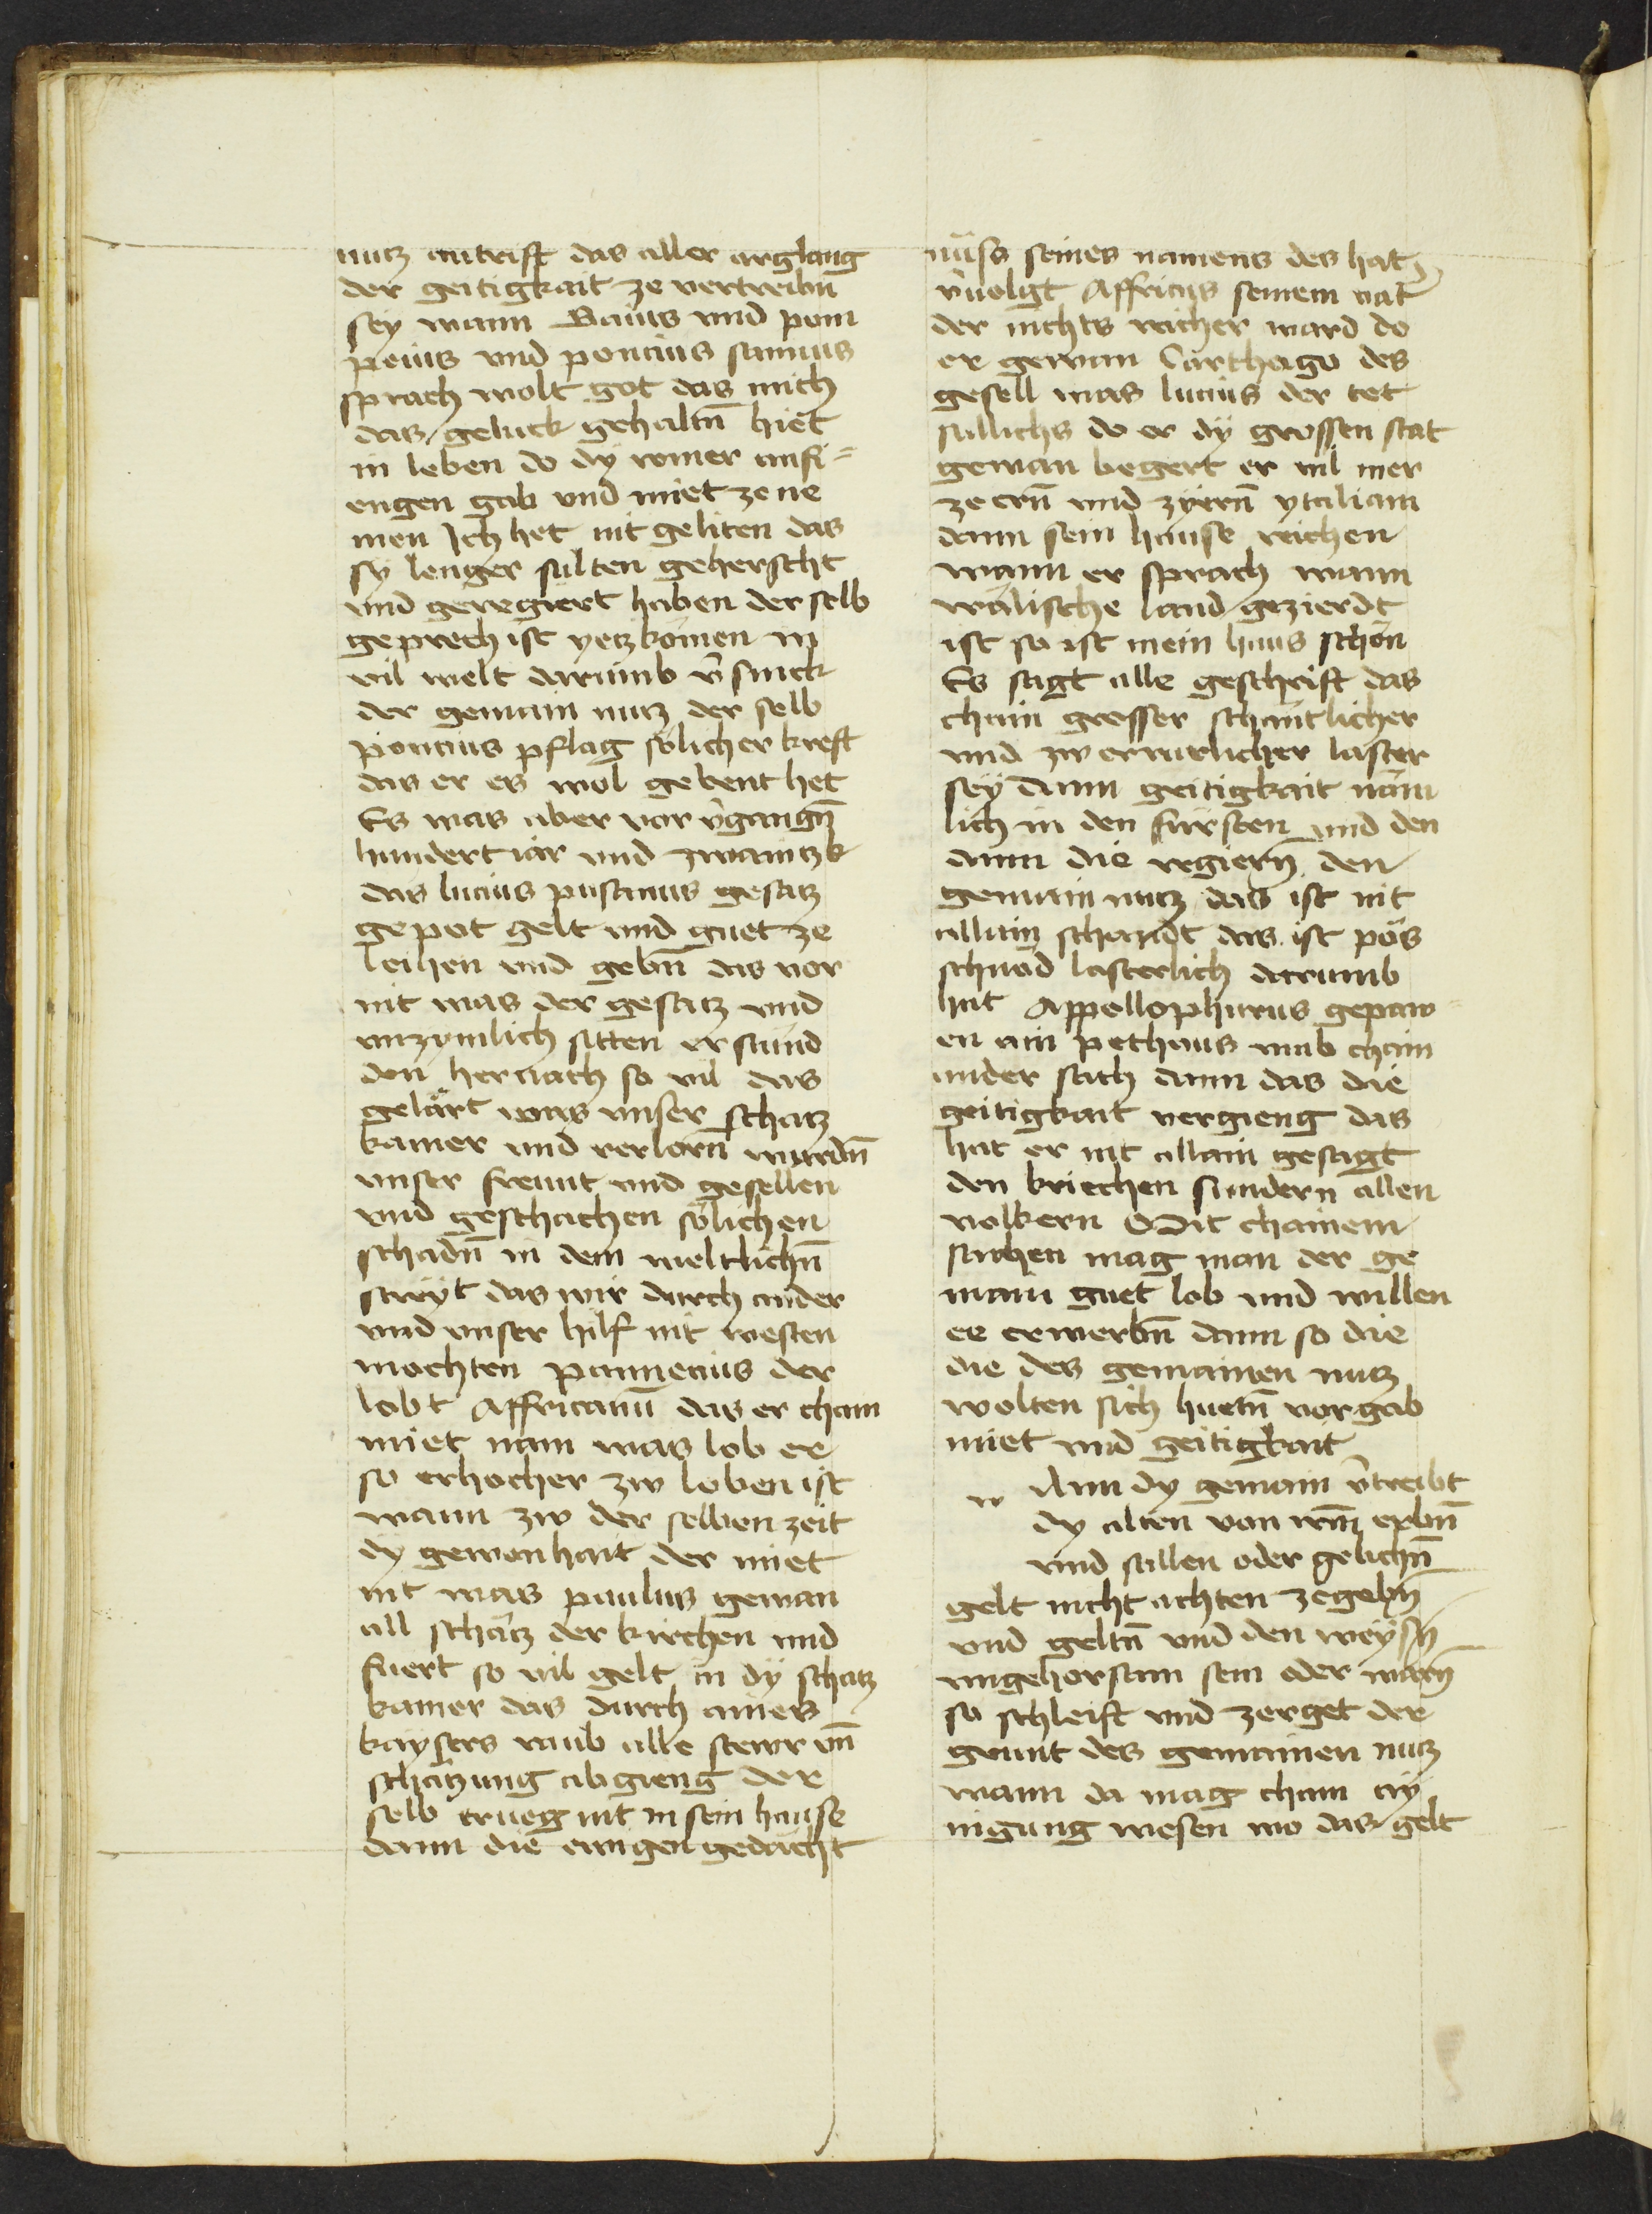 nutz antrift das aller arglang
der geitigkait ze vertreibn̄
sey wann Baius vnd pom
peius vnd poncius samius
sprach wolt got das mich
das geluck gehaltn̄ hiet
in leben do dy romer anfi=
engen gab vnd miet ze ne
men Ich het nit geliten das
sy lenger sulten geherscht
vnd geregiert haben der selb
geprech ist yetz komen in
vil welt darumb v̄sinck
der gemain nutz der selb
poncius pflag solicher kreft
das er es wol gebent het
Es was aber vor v̄gangn̄
hundert iar vnd zwaintzk
das lucius pusanius gesatz
gepot gelt vnd guet ze
leihen vnd gebn̄ das vor
nit was der gesatz vnd
vnzymlich sitten erstund
den hernach so vil das
gelärt was vnser schatz
kamer vnd verlorn̄ wurdn̄
vnser freunt vnd gesellen
vnd geschachen sölichen
schadn̄ in dem weltlichn̄
streyt das wir durch ander
vnd vnser hilf nit westen
mochten pannecius der
lobt Affricanū das er chain
miet nam was lob er
so er hocher zw loben ist
wann zw der selben zeit
dy gewonhait der miet
nit was paulus gewan
all schätz der kirchen vnd
fuert so vil gelt in dy schatz
kamer das durch aines
kaysers raub alle stewr vn̄
schatzung abgieng der
selb trueg nit in sein hause
dann die ewigen gedächt
nüss seines namens des hat
v̄uolgt Affricus seinem vat̄
der nichts reicher ward do
er gewan Carthago des
gesell was lucius der tet
sullichs do er dÿ grossen stat
gewan begert er vil mer
ze ern̄ vnd zyern̄ ytaliam
dann sein hause reichen
wann er sprach wann
wälische land gezierdt
ist so ist mein haus schön
Es sagt alle geschrift das
chain grosser schantlicher
vnd zw erwerlicher laster
sey dann geitigkait näm
lich in den fürsten vnd den
dann die regiern̄ den
gemain nutz das ist nit
allain schandt das ist pös
schnöd lasterlich darumb
hat Appollopharus gepaw
en ain pethaus vmb chain
ander sach dann das die
geitigkait vergieng das
hat er nit allain gesagt
den kriechen sundern allen
volkern Mit chainem
sachen mag man der ge
main guet lob vnd willen
ee erwerbn̄ dann so die
die des gemainen nutz
wolten sich huetn̄ vor gab
miet vnd geitigkait
w Ann dy gemain v̄treibt
dy alten von irm̄ erbn̄
vnd stillen oder gelichn̄
gelt nicht achten ze gebn̄
vnd geltn̄ vnd den weysn̄
vngehorsam sein oder warn̄
so schleift vnd zerget der
grunt des gemainen nutz
wann da mag chain ay
nigung wesen wo das gelt